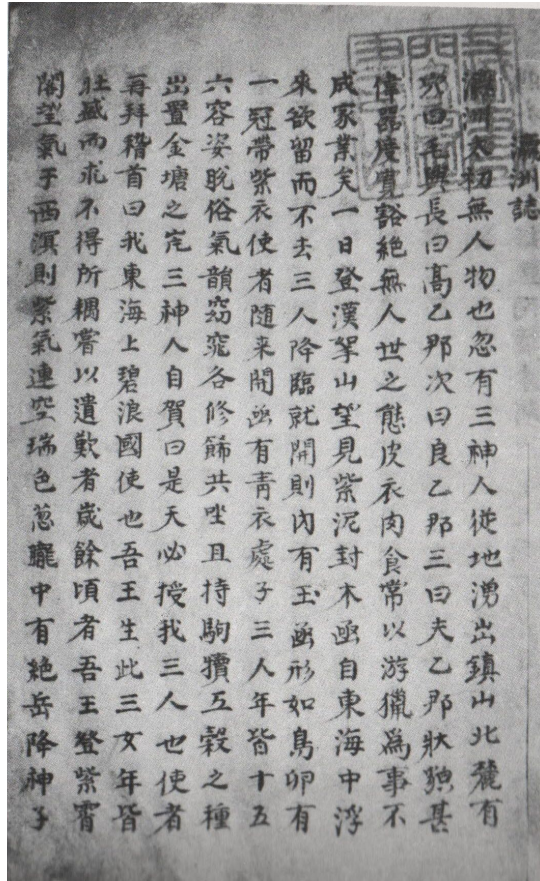 瀛洲誌
瀛洲太初無人物也忽有三神人從地湧出鎮山北麓有
穴曰毛興長曰高乙那次曰良乙那三曰夫乙那狀貌甚
偉器度寬豁絶無人世之態皮衣肉食常以游獵爲事不
成家業矣一日登漢拏山望見紫泥封木函自東海中浮
來欲留而不去三人降臨就開則內有玉函形如鳥卵有
一冠帶紫衣使者随来開函有靑衣處子三人年皆十五
六容姿脫俗氣韻窈窕各修餙共坐且持駒犢五穀之種
出置金塘之岸三神人自賀曰是天必授我三人也使者
再拜稽首曰我東海上碧浪國使也吾王生此三女年皆
壯盛而求不得所耦嘗以遺歎者歲餘頃者吾王登紫霄
閣望氣于西溟則紫氣連空瑞色葱朧中有絶岳降神子